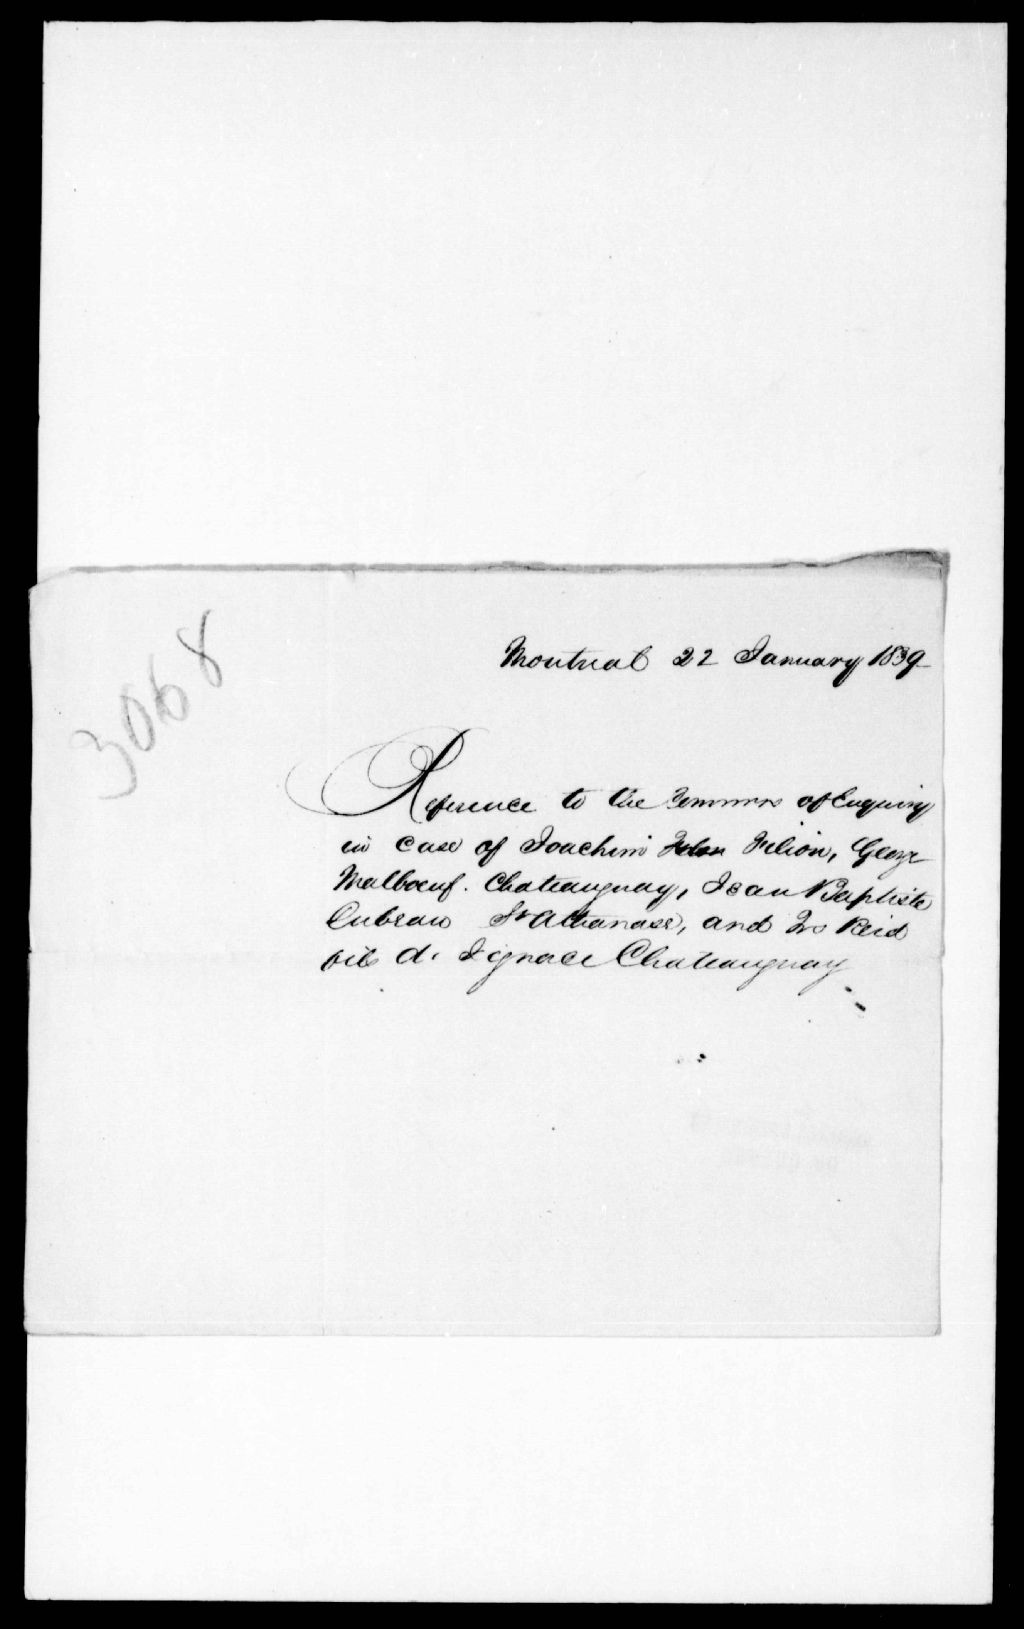 3068
Montreal 22 January 1839
Reference to the Commrs of Enquiry
in case of Joachim Filion, George
Malboeuf. Chateauguay, Jean Baptiste
St Athanase, and Reid
fils d. Ignace Chateauguay